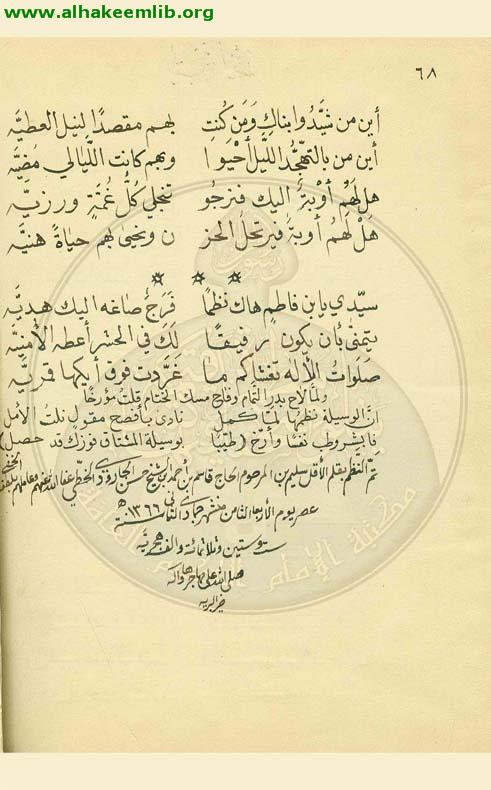 www.alhakeemlib.org
٦٨
أين من شيَّدوا بناكِ ومَن كنتِ بهم مقصدًا لنيل العطيَّه
أين من بالتهجُّد اللَّيلَ أحْيَوا وبهم كانت اللَّيالي مُضِيَّه
هل لهُم أوْبةٌ اليك فنرجُو تنجَلي كلُّ غُمَّةٍ ورزيَّه
هَلْ لهُم أوبةٌ فيرتحلُ الحز ن ونحيى بهم حياةً هنيَّه
سيّدي يابن فاطمٍ هاك نظمًا فَرَجٌ صاغه اليك هديَّه
يتمنّى بأن يكون رفيقًا لكَ في الحشر أعطه الأمنيَّه
صلواتُ الإله تغشاكم ما غرَّدت فوق أيكها قمريَّه
ولمَّا لاح بدر التَّمام وفاح مسك الختام قلت مؤرخًا
انَّ الوسيلة نظمها لمَّا كمل نادى بأفصح مقولٍ نلتُ الأمل
فابشر وطب نفسًا وأرِّخ (طيّبًا بوسيلة المشتاق فوزك قد حصل)
تمّ النظم بقلم الأقل سليم بن المرحوم الحاج قاسم بن أحمد بن الشيخ حسن الجارودي الخطّي عفا الله عنهم
عصر يوم الأربعاء الثامن من شهر جمادى الثاني ١٣٦٦هـ
ست وستين وثلاثمائة والف هجريَّه
صلى الله على مهاجرها وآله
خير البريه